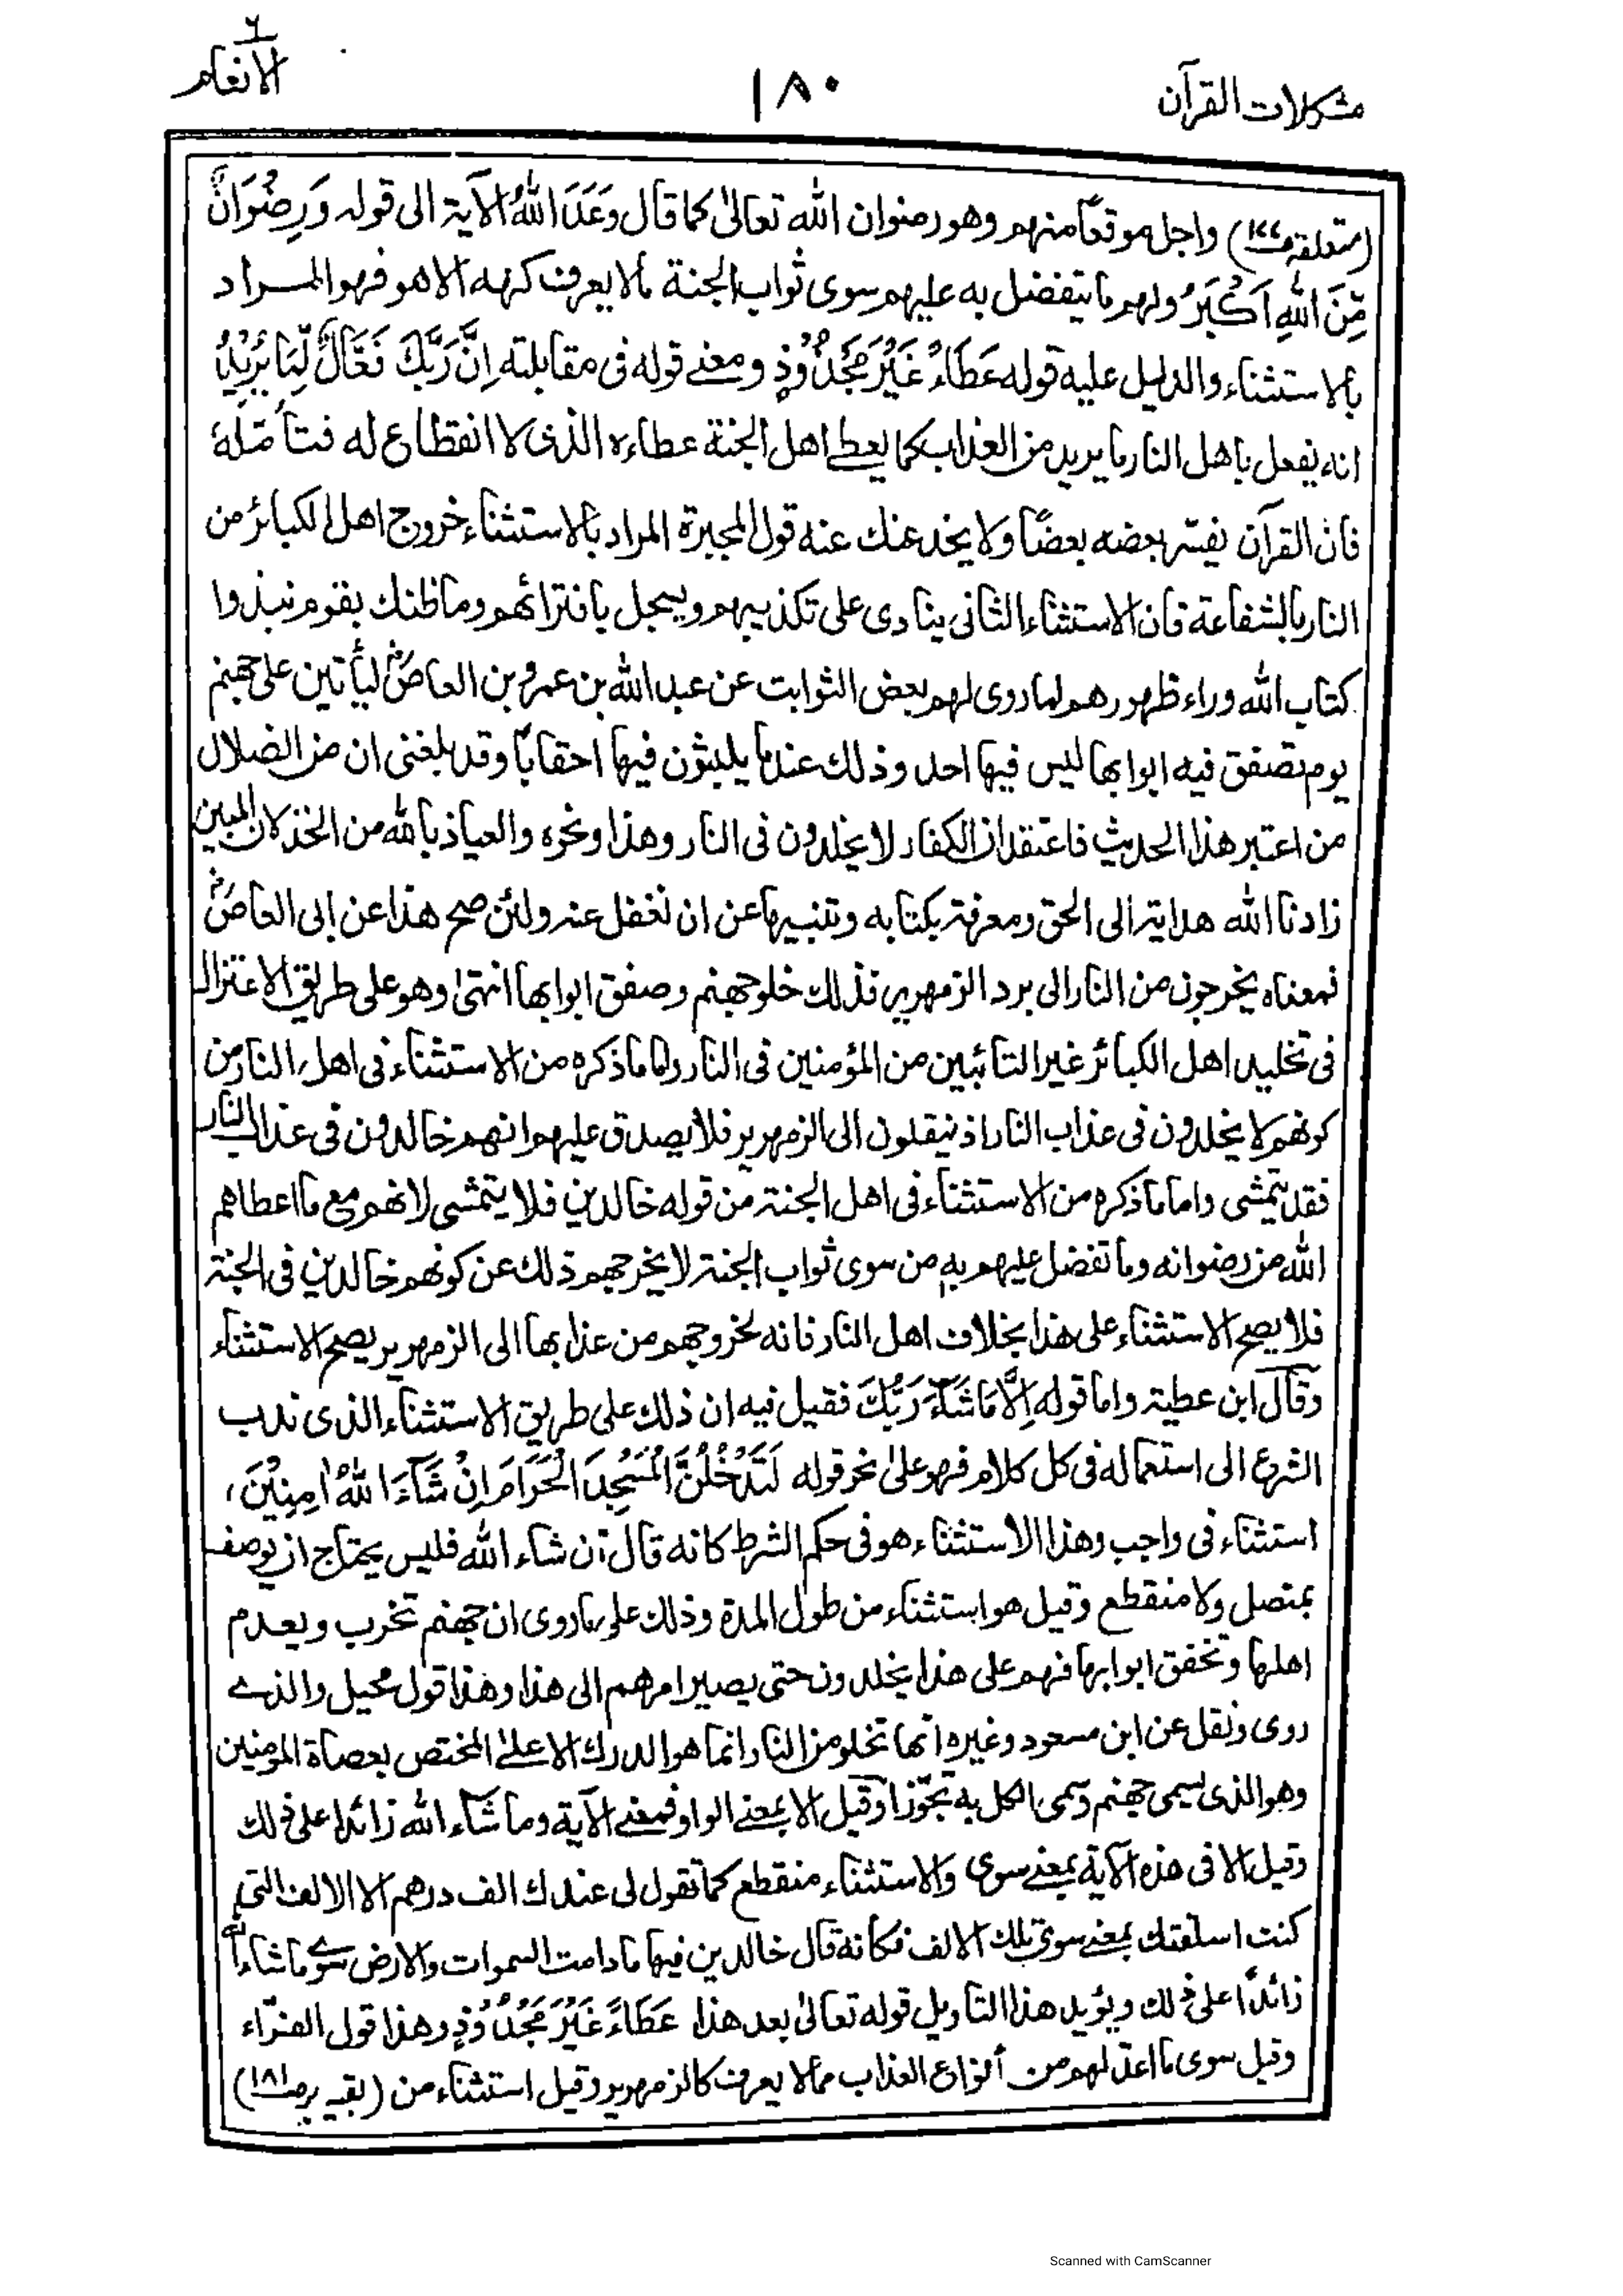 ٦
الانعام
١٨٠
مشكلات القرآن
(متعلقہ ص١٧٧) واجل موقعًا منهم وهو رضوان الله تعالىٰ كما قال وَعَدَ اللهُ الآية الى قوله وَرِضْوَانٌ
مِّنَ اللهِ اَكْبَرُ ولهم ما يتفضل به عليهم سوى ثواب الجنة مالا يعرف كنهه الا هو فهو المراد
بالاستثناء والدليل عليه قوله عَطَاءً غَيْرَ مَجْذُوْذٍ ومعنے قوله فى مقابلته اِنَّ رَبَّكَ فَعَّالٌ لِّمَا يُرِيْدُ
انه يفعل باهل النار ما يريد من العذاب كما يعطے اهل الجنة عطاءه الذى لا انقطاع له فتأمّله
فان القرآن يفسّر بعضه بعضًا ولا يخدعنك عنه قول المجبرة المراد بالاستثناء خروج اهل الكبائر من
النار بالشفاعة فان الاستثناء الثانى ينادى على تكذيبهم ويسجل بافترائهم وما ظنك بقوم نبذوا
كتاب الله وراء ظهورهم لما روى لهم بعض الثوابت عن عبد الله بن عمرو بن العاصؓ ليأتين على جهنم
يوم تصفق فيه ابوابها ليس فيها احد وذلك عند ما يلبثون فيها احقابًا وقد بلغنى ان من الضلال
من اعتبر هذا الحديث فاعتقد ان الكفار لا يخلدون فى النار وهذا ونحوه والعياذ بالله من الخذلان المبين
زادنا الله هداية الى الحق ومعرفة بكتابه وتنبيها عن ان نغفل عنه ولئن صح هذا عن ابى العاصؓ
فمعناه يخرجون من النار الى برد الزمهرير فذلك خلو جهنم وصفق ابوابها انتهىٰ وهو على طريق الاعتزال
فى تخليد اهل الكبائر غير التائبين من المؤمنين فى النار واما ما ذكره من الاستثناء فى اهل النار من
كونهم لا يخلدون فى عذاب النار اذ ينقلون الى الزمهرير فلا يصدق عليهم انهم خالدون فى عذاب النار
فقد يتمشى واما ما ذكره من الاستثناء فى اهل الجنة من قوله خالدين فلا يتمشى لانهم مع ما اعطاهم
الله من رضوانه وما تفضل عليهم به من سوى ثواب الجنة لا يخرجهم ذلك عن كونهم خالدين فى الجنة
فلا يصح الاستثناء على هذا بخلاف اهل النار فانه لخروجهم من عذابها الى الزمهرير يصح الاستثناء
وقال ابن عطية واما قوله اِلَّا مَا شَآءَ رَبُّكَ فقيل فيه ان ذلك على طريق الاستثناء الذى ندب
الشرع الى استعماله فى كل كلام فهو علىٰ نحو قوله لَتَدْخُلُنَّ الْمَسْجِدَ الْحَرَامَ اِنْ شَآءَ اللهُ اٰمِنِيْنَ،
استثناء فى واجب وهذا الاستثناء هو فى حكم الشرط كانه قال ان شاء الله فليس يحتاج ان يوصف
بمتصل ولا منقطع وقيل هو استثناء من طول المدة وذلك على ما روى ان جهنم تخرب ويعدم
اهلها وتخفق ابوابها فهم على هذا يخلدون حتى يصير امرهم الى هذا وهذا قول محيل والذى
روى ونقل عن ابن مسعود وغيره انها تخلو من النار انما هو الدرك الاعلىٰ المختص بعصاة المومنين
وهو الذى يسمى جهنم وسمى الكل به تجوّزا وقيل الا بمعنے الواو فمعنے الآية وما شاء الله زائدا على ذلك
وقيل الا فى هذه الآية بمعنے سوى والاستثناء منقطع كما تقول لى عندك الف درهم الا الالف التى
كنت اسلفتك بمعنے سوى تلك الالف فكأنه قال خالدين فيها ما دامت السموات والارض سوى ما شاء الله
زائدًا على ذلك ويؤيد هذا التاويل قوله تعالىٰ بعد هذا عَطَاءً غَيْرَ مَجْذُوْذٍ وهذا قول الفرّاء
وقيل سوى ما اعدّ لهم من أنواع العذاب مما لا يعرف كالزمهرير وقيل استثناء من (بقيہ بر ص١٨١)
Scanned with CamScanner